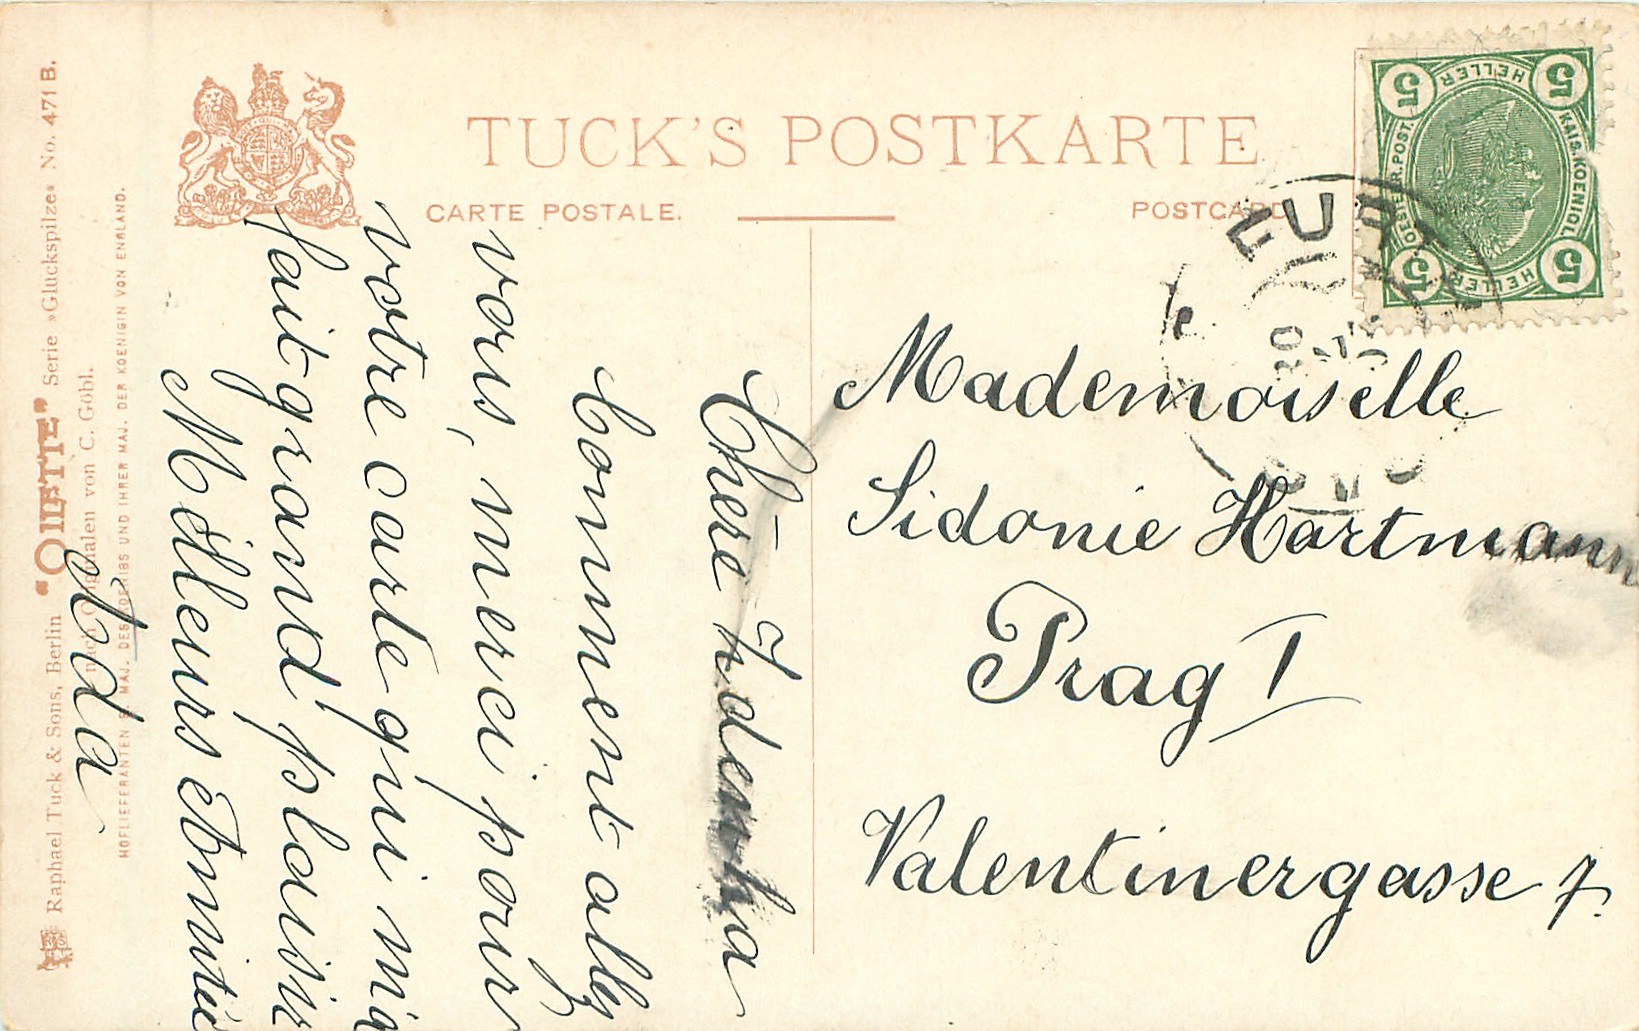 TUCK'S POSTKARTE
CARTE POSTALE.
POSTCARD
Raphael Tuck & Sons, Berlin "OILETTE" Serie »Glückspilze« No. 471 B.
nach Originalen von C. Göbl.
HOFLIEFERANTEN S. MAJ. DES KOENIGS UND IHRER MAJ. DER KOENIGIN VON ENGLAND.
5 HELLER 5
KAIS. KOENIGL.
OESTERR. POST.
5 HELLER 5
FURTH
Mademoiselle
Sidonie Hartmann
Prag I
Valentinergasse 7.
Chère Zdenka
Comment ally
vous, merci pour
votre carte qui m'a
fait grand plaisir
Melleurs Amitié
Ada